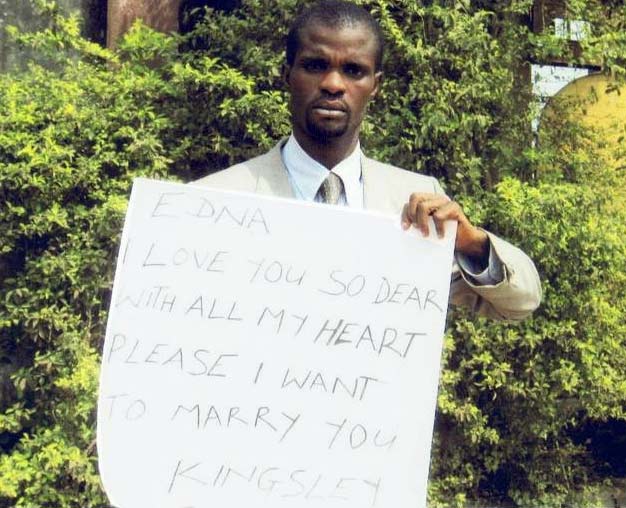 EDNA
I LOVE YOU SO DEAR
WITH ALL MY HEART
PLEASE I WANT
TO MARRY YOU
KINGSLEY